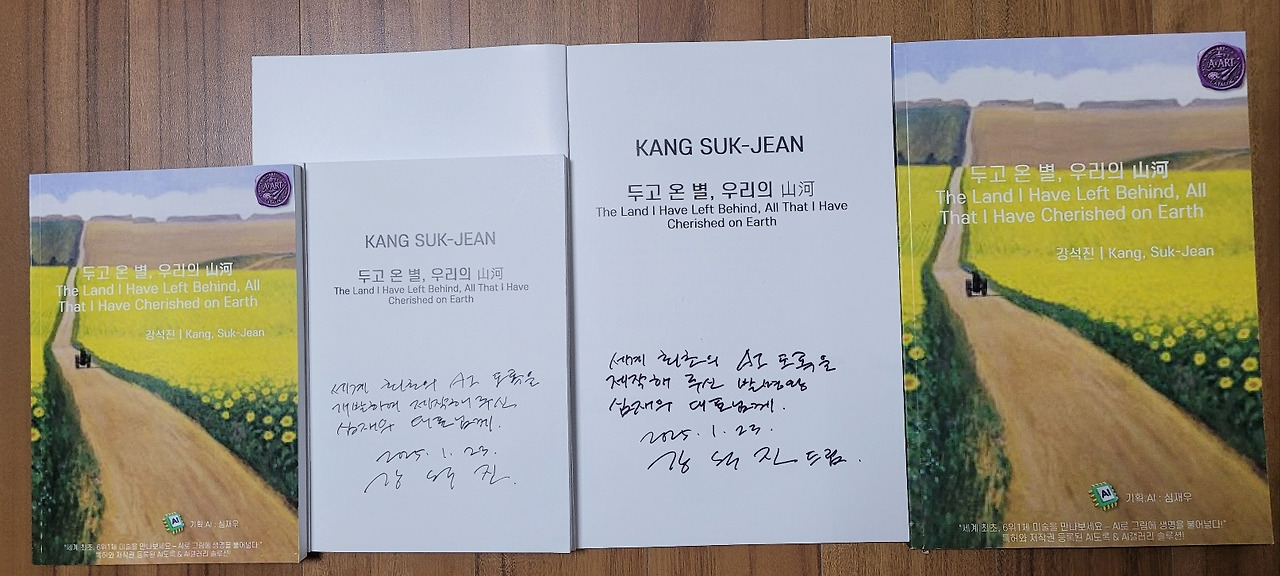 A·ART
CATALOG
두고 온 별, 우리의 山河
The Land I Have Left Behind, All
That I Have Cherished on Earth
강석진 | Kang, Suk-Jean
AI
기획:AI : 심재우
"세계 최초, 6위1체 미술을 만나보세요 – AI로 그림에 생명을 불어넣다!"
특허와 저작권 등록된 AI도록 & AI갤러리 솔루션!
KANG SUK-JEAN
두고 온 별, 우리의 山河
The Land I Have Left Behind, All That I Have
Cherished on Earth
세계 최초의 AI 도록을
개발하여 제작해 주신
심재우 대표님께.
2025. 1. 23.
강 석 진.
KANG SUK-JEAN
두고 온 별, 우리의 山河
The Land I Have Left Behind, All That I Have
Cherished on Earth
세계 최초의 AI 도록을
제작해 주신 발명왕
심재우 대표님께.
2025. 1. 23.
강 석 진 드림.
A·ART
CATALOG
두고 온 별, 우리의 山河
The Land I Have Left Behind, All
That I Have Cherished on Earth
강석진 | Kang, Suk-Jean
AI
기획:AI : 심재우
"세계 최초, 6위1체 미술을 만나보세요 – AI로 그림에 생명을 불어넣다!"
특허와 저작권 등록된 AI도록 & AI갤러리 솔루션!